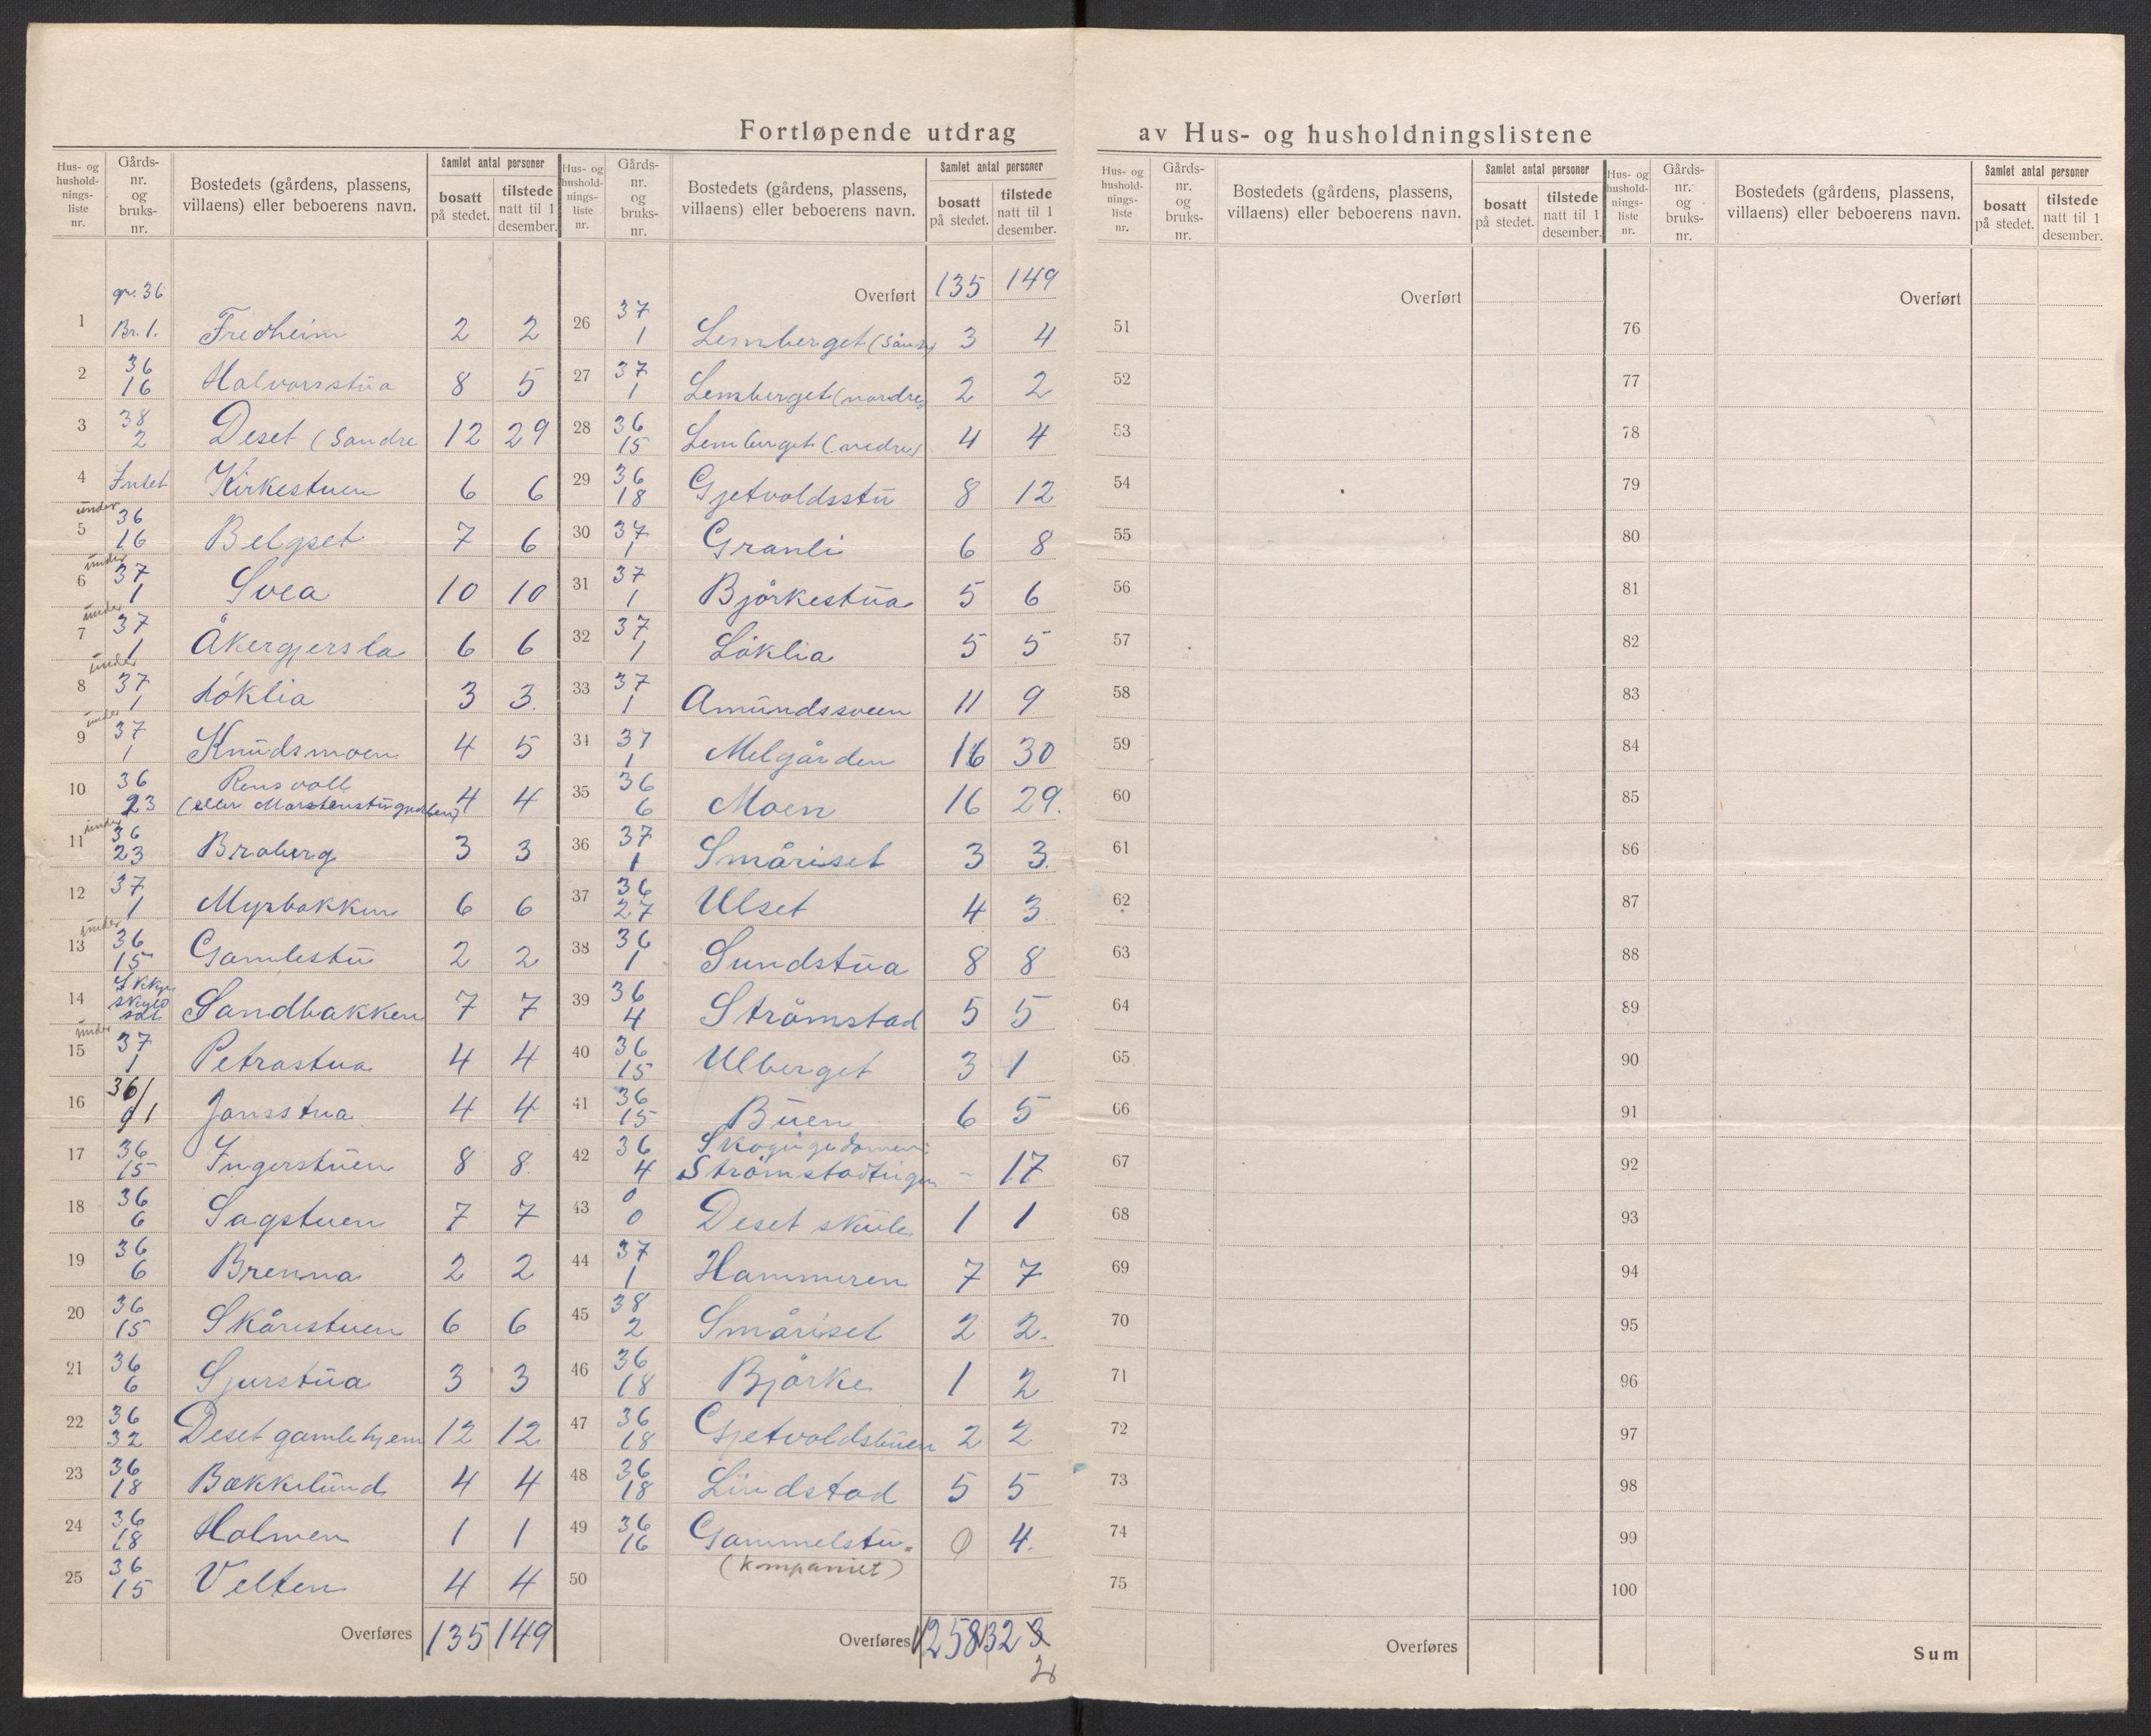 Fortløpende utdrag av Hus- og husholdningslistene
Hus- og husholdnings-liste nr. | Gårds-nr. og bruks-nr. | Bostedets (gårdens, plassens, villaens) eller beboerens navn. | Samlet antal personer | bosatt på stedet. | tilstede natt til 1 desember.
Hus- og husholdnings-liste nr. | Gårds-nr. og bruks-nr. | Bostedets (gårdens, plassens, villaens) eller beboerens navn. | Samlet antal personer | bosatt på stedet. | tilstede natt til 1 desember.
1 gr. 36 Br. 1. Fredheim 2 2
2 36 16 Halvorsstua 8 5
3 38 2 Deset (Søndre 12 29
4 Intet Kirkestuen 6 6
5 under 36 16 Belgset 7 6
6 under 37 1 Svea 10 10
7 under 37 1 Åkergjersla 6 6
8 under 37 1 Løklia 3 3.
9 under 37 1 Knudsmoen 4 5
10 36 23 Rensvoll (eller 4 4
11 under 36 23 Broberg 3 3
12 37 1 Myrbakken 6 6
13 under 36 15 Gamlestu 2 2
14 skyld Sandbakken 7 7
15 under 37 1 Petrastua 4 4
16 36/1 Jonsstua 4 4
17 36 15 Ingerstuen 8 8.
18 36 6 Sagstuen 7 7
19 36 6 Brenna 2 2
20 36 15 Skårestuen 6 6
21 36 6 Sjurstua 3 3
22 36 32 Deset gamlehjem 12 12
23 36 18 Bækkelund 4 4
24 36 18 Holmen 1 1
25 36 15 Velten 4 4
Overføres 135 149
Overført 135 149
26 37 1 Lemberget (Sønd) 3 4
27 37 1 Lemberget (nordre) 2 2
28 36 15 Lemberget (nedre) 4 4
29 36 18 Gjetvoldsstu 8 12
30 37 1 Granli 6 8
31 37 1 Bjørkestua 5 6
32 37 1 Løklia 5 5
33 37 1 Amundssveen 11 9
34 37 1 Melgården 16 30
35 36 6 Moen 16 29.
36 37 1 Småriset 3 3.
37 36 27 Ulset 4 3
38 36 1 Sundstua 8 8
39 36 4 Strømstad 5 5
40 36 15 Ulberget 3 1
41 36 15 Buen 6 5
42 36 4 - 17
43 0 0 Deset skule 1 1
44 37 1 Hammeren 7 7
45 38 2 Småriset 2 2.
46 36 18 Bjørke 1 2
47 36 18 Gjetvoldstuen 2 2
48 36 18 Lindstad 5 5
49 36 16 Gammelstu- 0 4.
(Kompaniet)
50
Overføres 258 323
2
Hus- og husholdnings-liste nr. | Gårds-nr. og bruks-nr. | Bostedets (gårdens, plassens, villaens) eller beboerens navn. | Samlet antal personer | bosatt på stedet. | tilstede natt til 1 desember.
Overført
51
52
53
54
55
56
57
58
59
60
61
62
63
64
65
66
67
68
69
70
71
72
73
74
75
Overføres
Hus- og husholdnings-liste nr. | Gårds-nr. og bruks-nr. | Bostedets (gårdens, plassens, villaens) eller beboerens navn. | Samlet antal personer | bosatt på stedet. | tilstede natt til 1 desember.
Overført
76
77
78
79
80
81
82
83
84
85
86
87
88
89
90
91
92
93
94
95
96
97
98
99
100
Sum